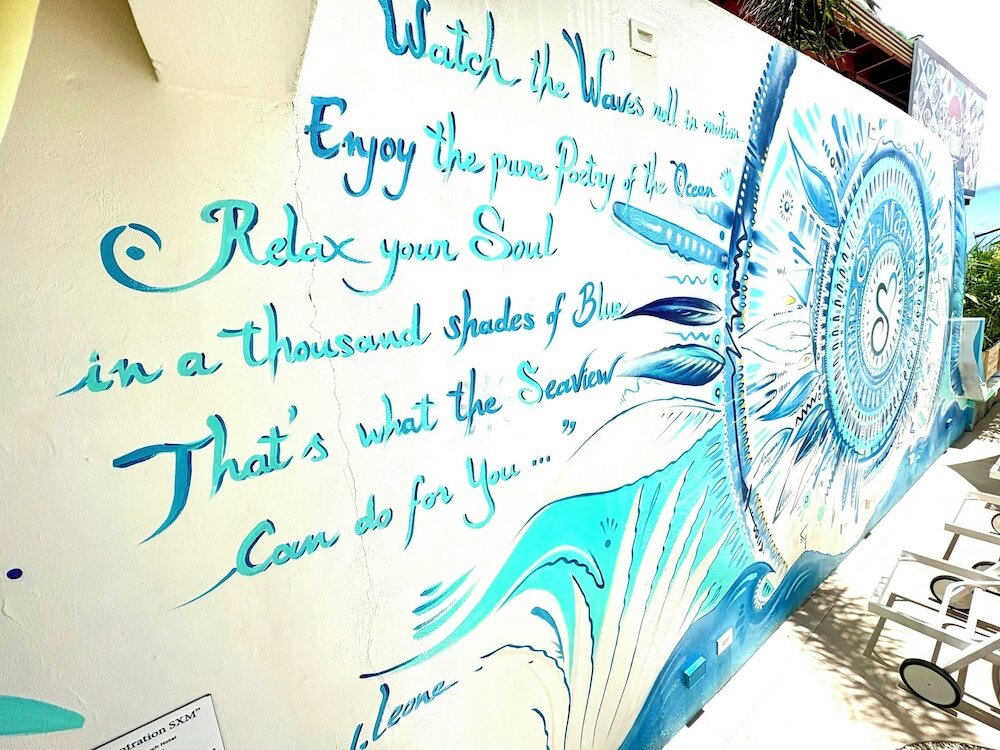 Watch the Waves roll in motion
Enjoy the pure Poetry of the Ocean
Relax your Soul
in a thousand shades of Blue
That's what the Seaview
Can do for You ... "
Leone
ntration SXM"